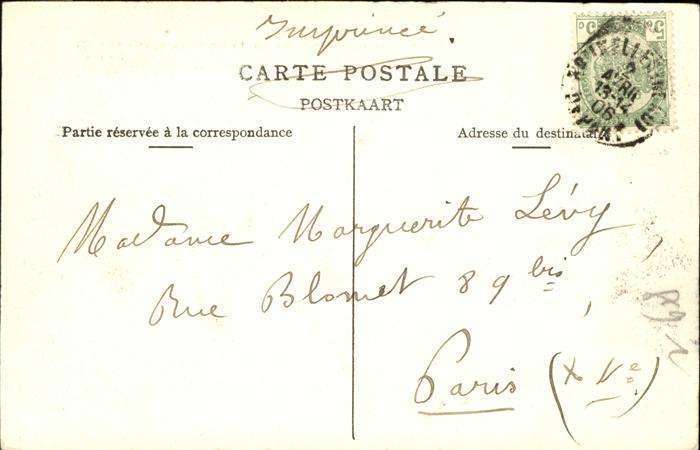 Imprimé
CARTE POSTALE
POSTKAART
Partie réservée à la correspondance
Adresse du destinat
5 c 5 c
AVRIL
13-14
06
Madame Marguerite Lévy,
Rue Blomet 89 bis,
Paris (XVe)